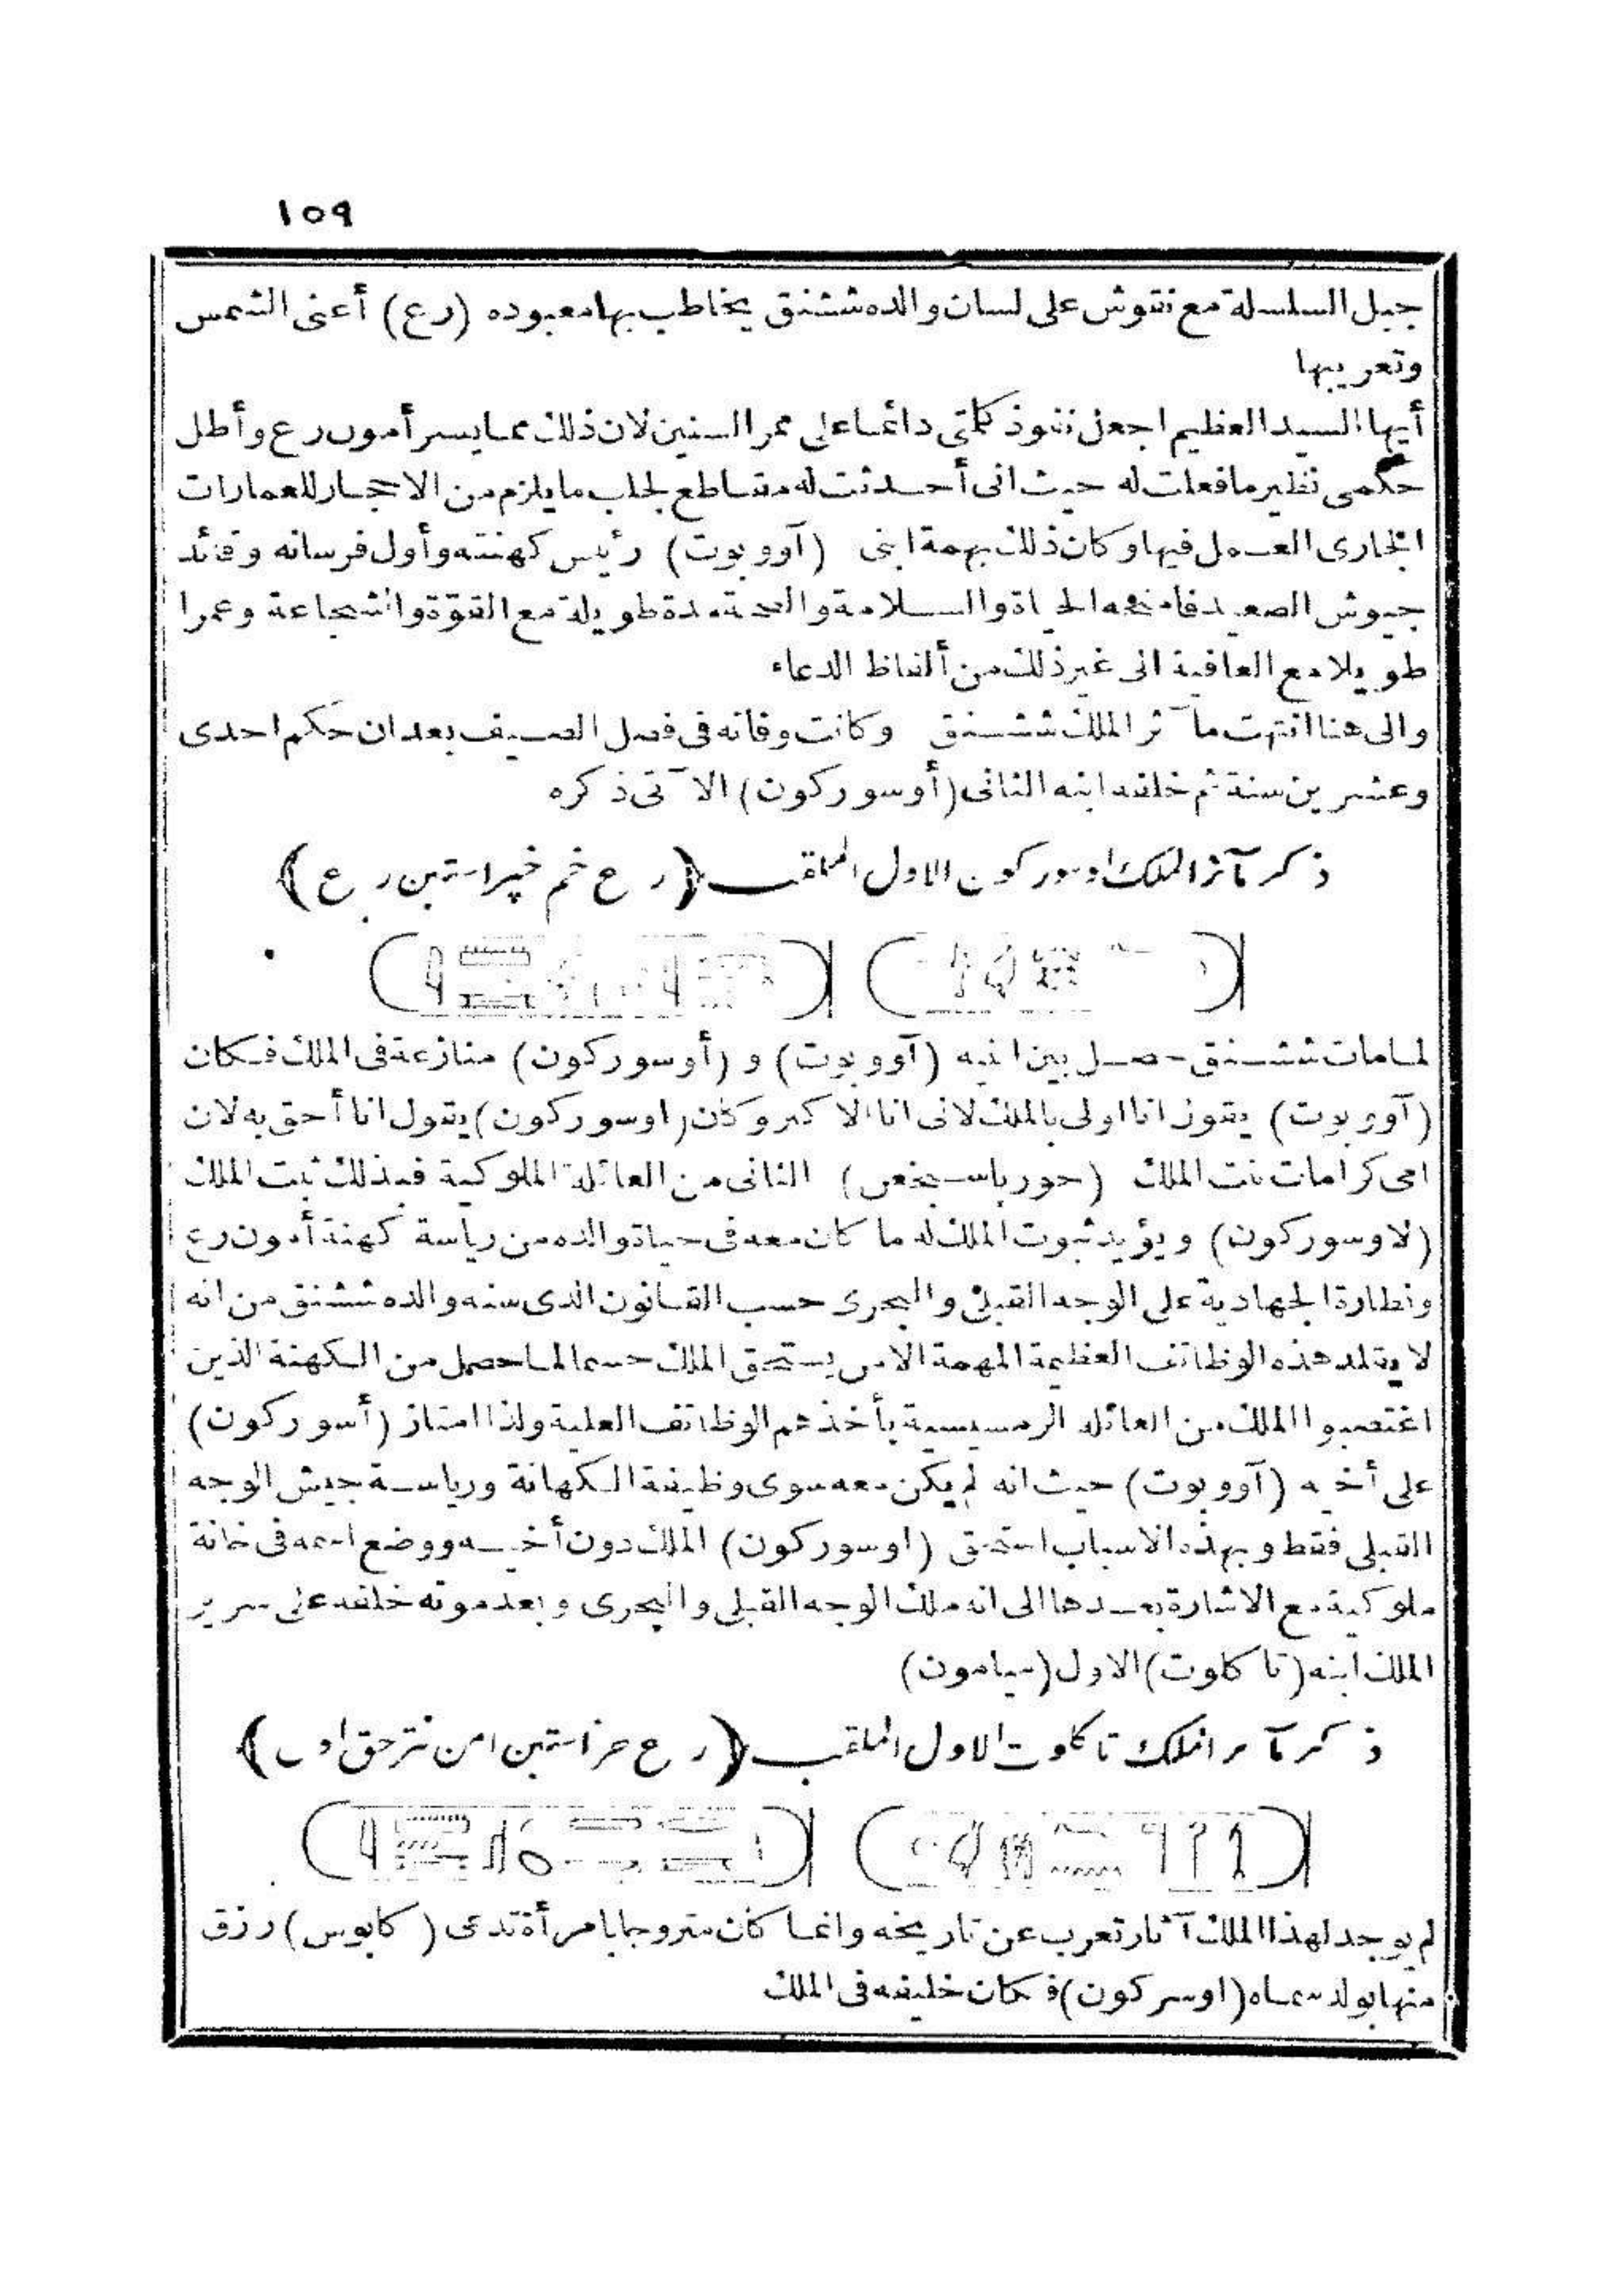 ١٥٩
جبل السلسلة مع نقوش على لسان والده ششنق يخاطب بها معبوده (رع) أعنى الشمس
وتعريبها
أيها السيد العظيم اجعل نفوذ كلمتى دائما على ممر السنين لان ذلك مما يسر أمون رع وأطل
حكمى نظير ما فعلت له حيث انى أحدثت له مقاطع لجلب ما يلزم من الاحجار للعمارات
الجارى العمل فيها وكان ذلك بهمة ابنى (آووبوت) رئيس كهنته وأول فرسانه وقائد
جيوش الصعيد فامنحه الحياة والسلامة والصحة مدة طويلة مع القوّة والشجاعة وعمرا
طويلا مع العافية الى غير ذلك من ألفاظ الدعاء
والى هنا انتهت مآثر الملك ششنق وكانت وفاته فى فصل الصيف بعد ان حكم احدى
وعشرين سنة ثم خلفه ابنه الثانى (أوسوركون) الآتى ذكره
ذكر مآثر الملك اوسوركون الاول الملقب (رع خم خپر استپن رع)
لما مات ششنق حصل بين ابنيه (آووبوت) و (أوسوركون) منازعة فى الملك فكان
(آووبوت) يقول انا اولى بالملك لانى انا الاكبر وكان (اوسوركون) يقول انا أحق به لان
امى كرامات بنت الملك (حورباسـبخعن) الثانى من العائلة الملوكية فبذلك ثبت الملك
(لاوسوركون) ويؤيد ثبوت الملك له ما كان معه فى حياة والده من رياسة كهنة أمون رع
ونظارة الجهادية على الوجه القبلى والبحرى حسب القانون الذى سنه والده ششنق من انه
لا يتقلد هذه الوظائف العظيمة المهمة الا من يستحق الملك حسما لما حصل من الكهنة الذين
اغتصبوا الملك من العائلة الرمسيسية بأخذهم الوظائف العلية ولذا امتاز (أسوركون)
على أخيه (آووبوت) حيث انه لم يكن معه سوى وظيفة الكهانة ورياسة جيش الوجه
القبلى فقط وبهذه الاسباب استحق (اوسوركون) الملك دون أخيه ووضع اسمه فى خانة
ملوكية مع الاشارة بعدها الى انه ملك الوجه القبلى والبحرى وبعد موته خلفه على سرير
الملك ابنه (تاكلوت) الاول (سيامون)
ذكر مآثر الملك تاكلوت الاول الملقب (رع حز استپن امن نتر حق اوس)
لم يوجد لهذا الملك آثار تعرب عن تاريخه وانما كان متزوجا بامرأة تدعى (كابوس) رزق
منها بولد سماه (اوسركون) فكان خليفه فى الملك